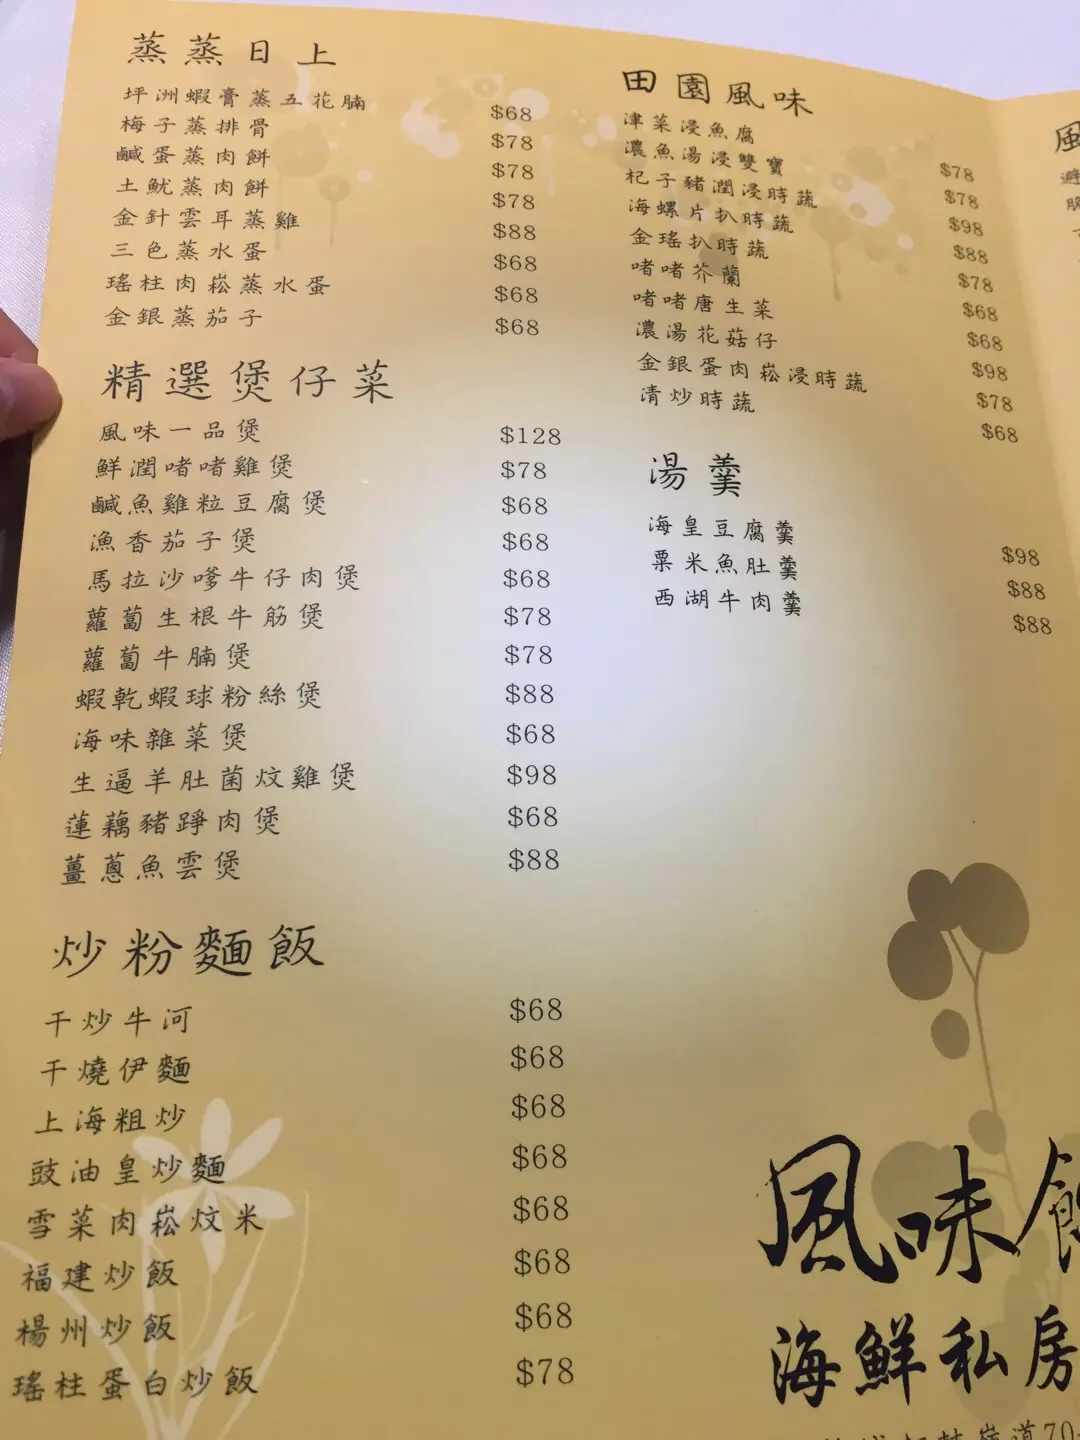 蒸蒸日上
坪洲蝦膏蒸五花腩 $68
梅子蒸排骨 $78
鹹蛋蒸肉餅 $78
土魷蒸肉餅 $78
金針雲耳蒸雞 $88
三色蒸水蛋 $68
瑤柱肉崧蒸水蛋 $68
金銀蒸茄子 $68
精選煲仔菜
風味一品煲 $128
鮮潤啫啫雞煲 $78
鹹魚雞粒豆腐煲 $68
漁香茄子煲 $68
馬拉沙嗲牛仔肉煲 $68
蘿蔔生根牛筋煲 $78
蘿蔔牛腩煲 $78
蝦乾蝦球粉絲煲 $88
海味雜菜煲 $68
生逼羊肚菌炆雞煲 $98
蓮藕豬踭肉煲 $68
薑蔥魚雲煲 $88
炒粉麵飯
干炒牛河 $68
干燒伊麵 $68
上海粗炒 $68
豉油皇炒麵 $68
雪菜肉崧炆米 $68
福建炒飯 $68
楊州炒飯 $68
瑤柱蛋白炒飯 $78
田園風味
津菜浸魚腐 $78
濃魚湯浸雙寶 $78
杞子豬潤浸時蔬 $98
海螺片扒時蔬 $88
金瑤扒時蔬 $78
啫啫芥蘭 $68
啫啫唐生菜 $68
濃湯花菇仔 $98
金銀蛋肉崧浸時蔬 $78
清炒時蔬 $68
湯羹
海皇豆腐羹 $98
粟米魚肚羹 $88
西湖牛肉羹 $88
風味
海鮮私房
道70
風
避